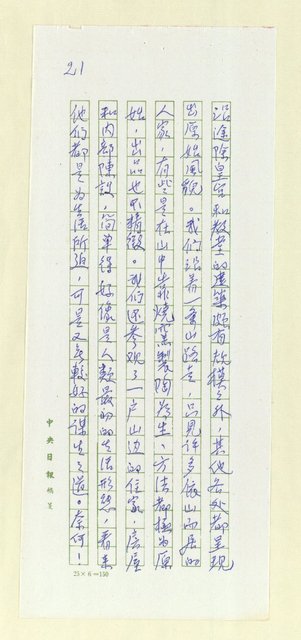 21
沿途除皇宮和教堂的建築頗有規模之外，其他各處都呈現
出原始風貌。我們沿着一重山路走，只見許多依山而居的
人家，有些是在山中靠燒窯製陶為生，方法都極為原
始，出品也不精緻。我們還參觀了一戶山邊的住家，房屋
和內部陳設，簡單得好像是人類最初的生活形態，看來
他們都是為生活所迫，可是又多較好的謀生之道。奈何！
中央日報稿箋
25×6＝150